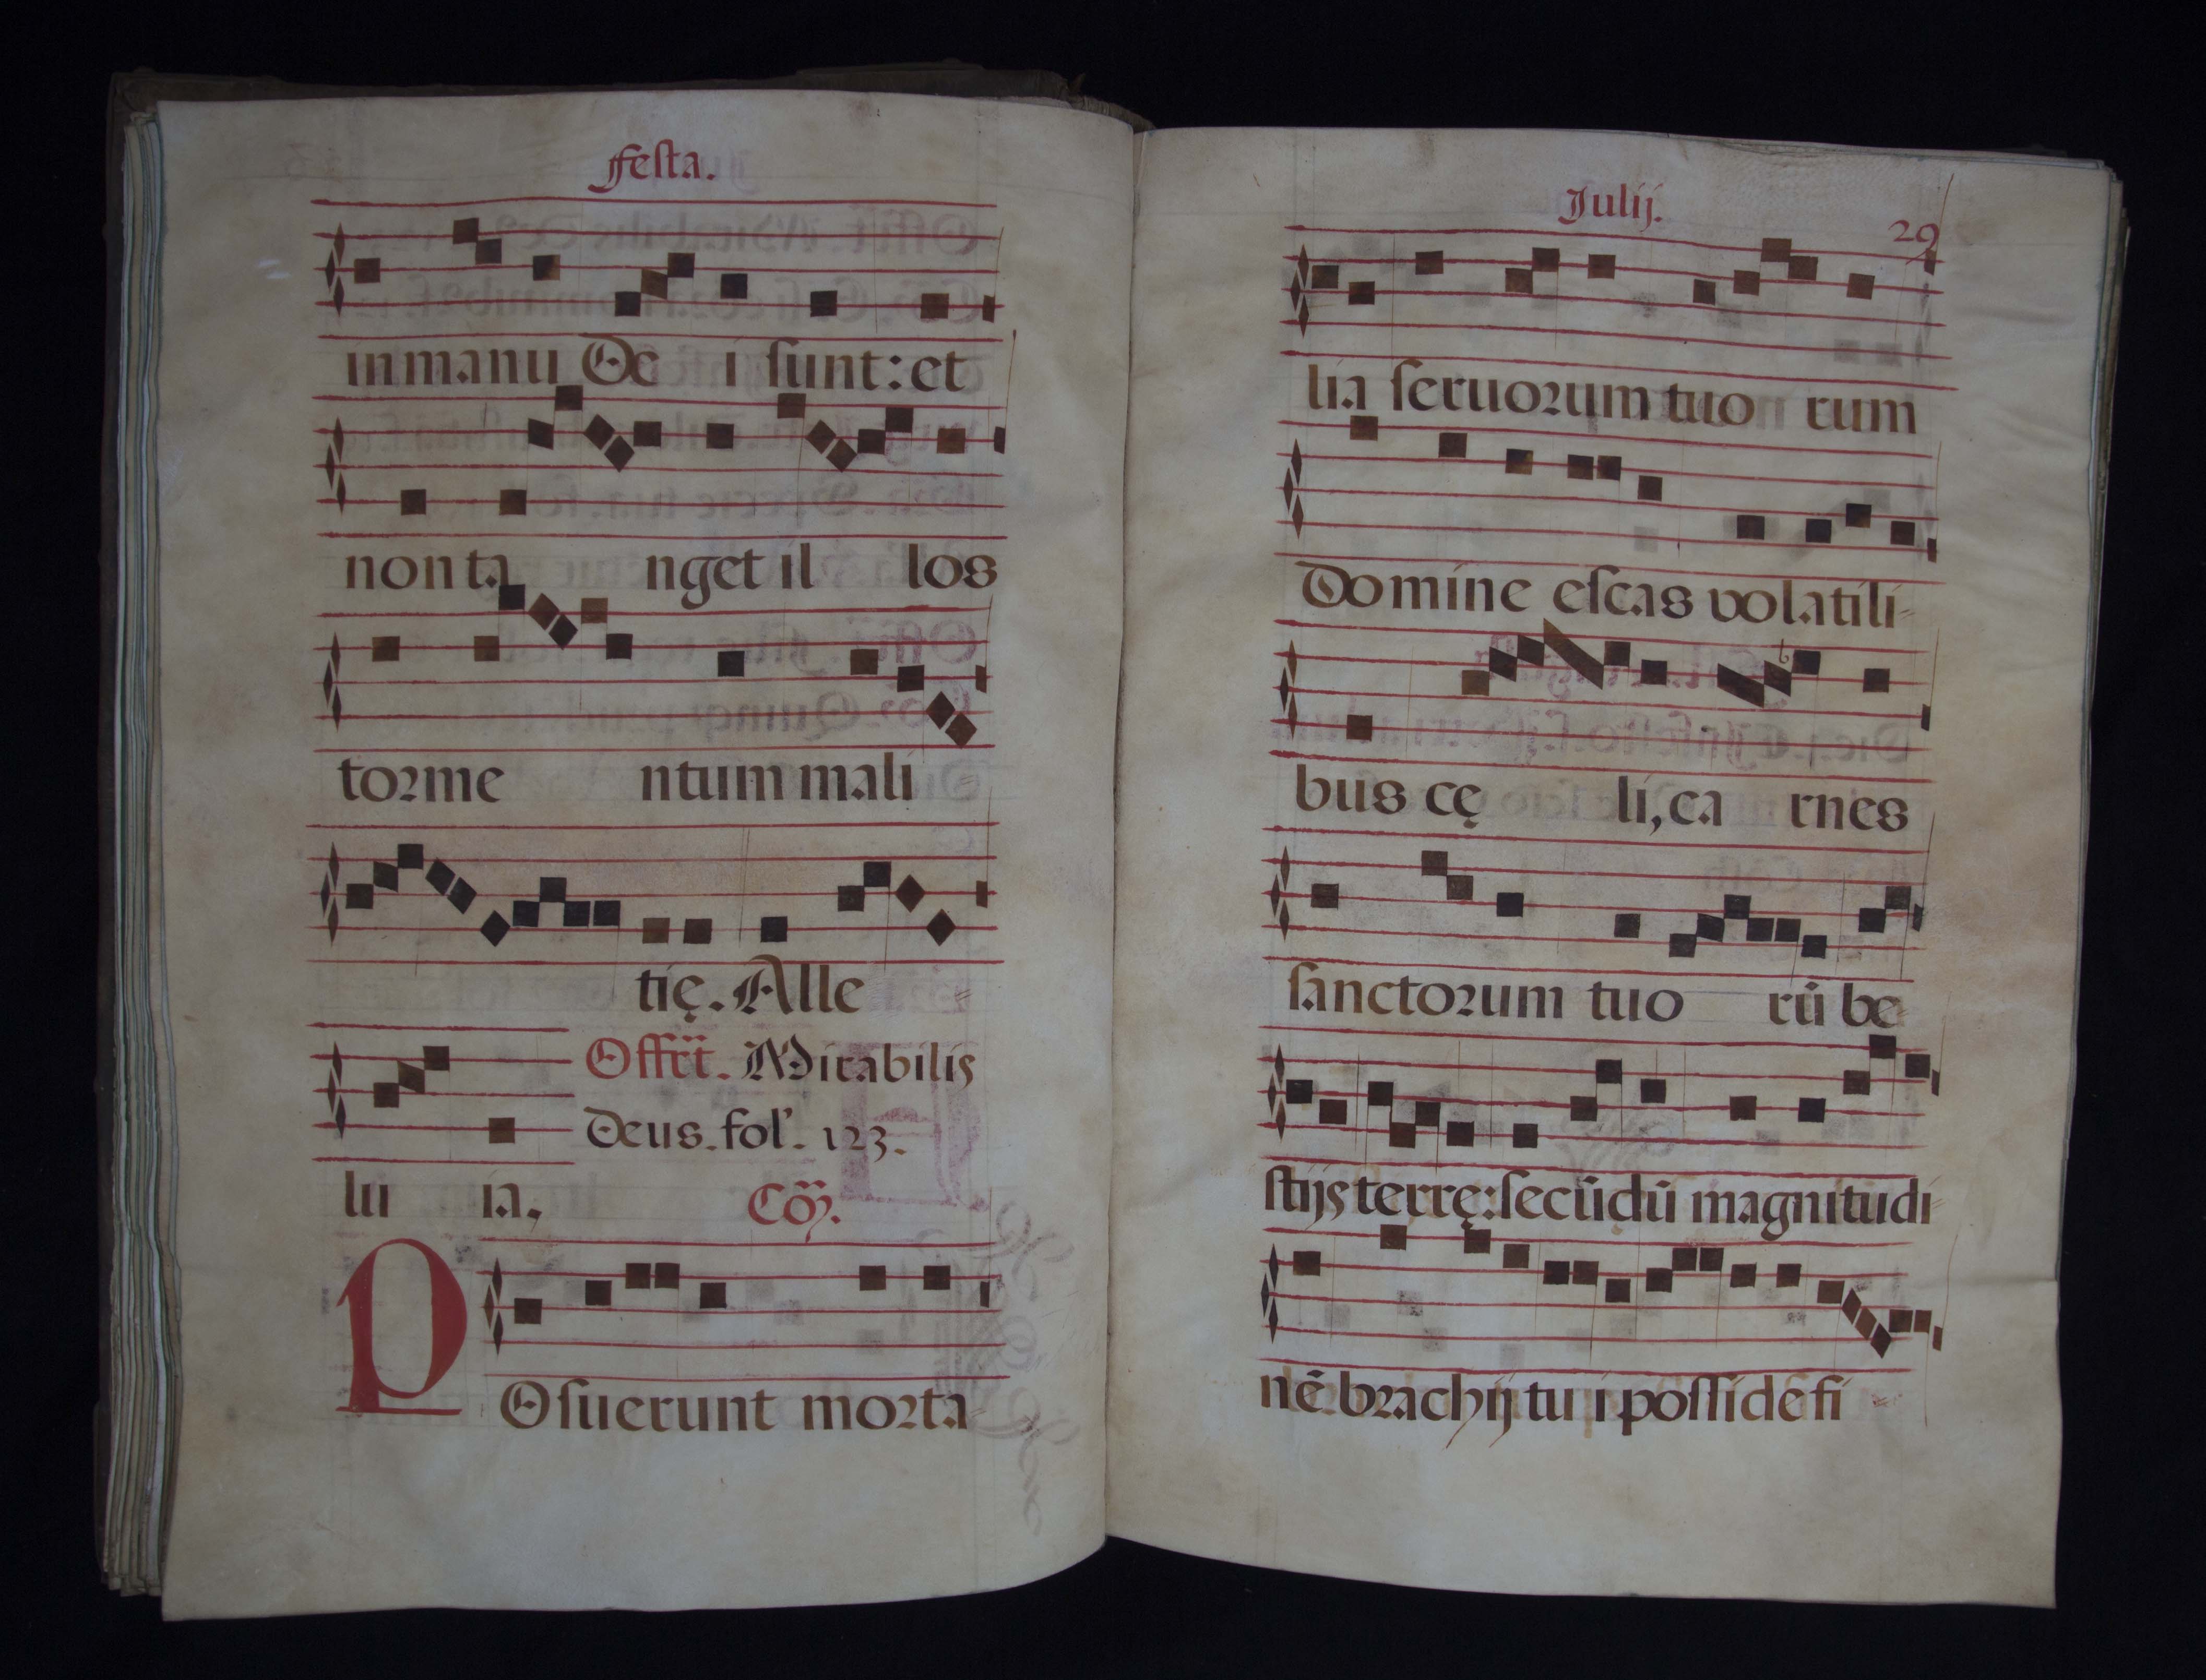 Festa.
in manu De i sunt: et
non ta nget il los
torme ntum mali
tię. Alle
Offrt. Mirabilis
Deus. fol'. 123.
lu ia,
Cõ.
POsuerunt morta
Julij.
29
lia seruorum tuo rum
Domine escas volatili
bus cę li, ca rnes
sanctorum tuo rũ be
stijs terrę: secũdũ magnitudi
nẽ brachij tu i posside fi